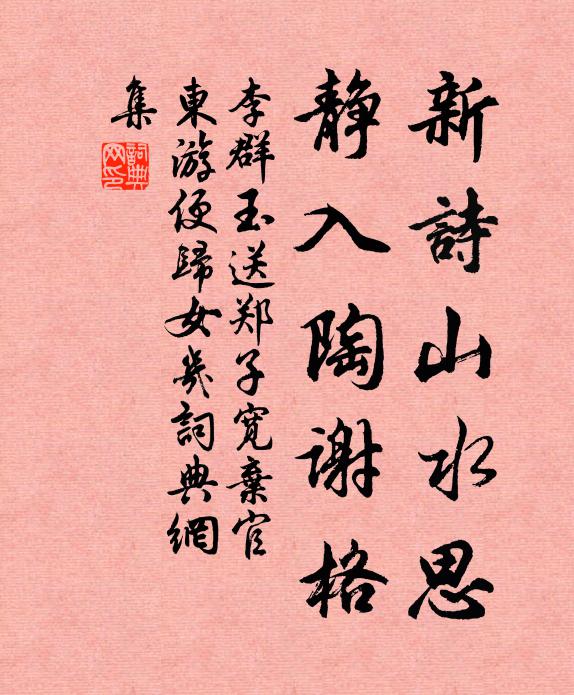 新詩山水思
静入陶谢格
李群玉送郑子寛棄官
東游便歸女㡬詞典網
集
詞典
网印